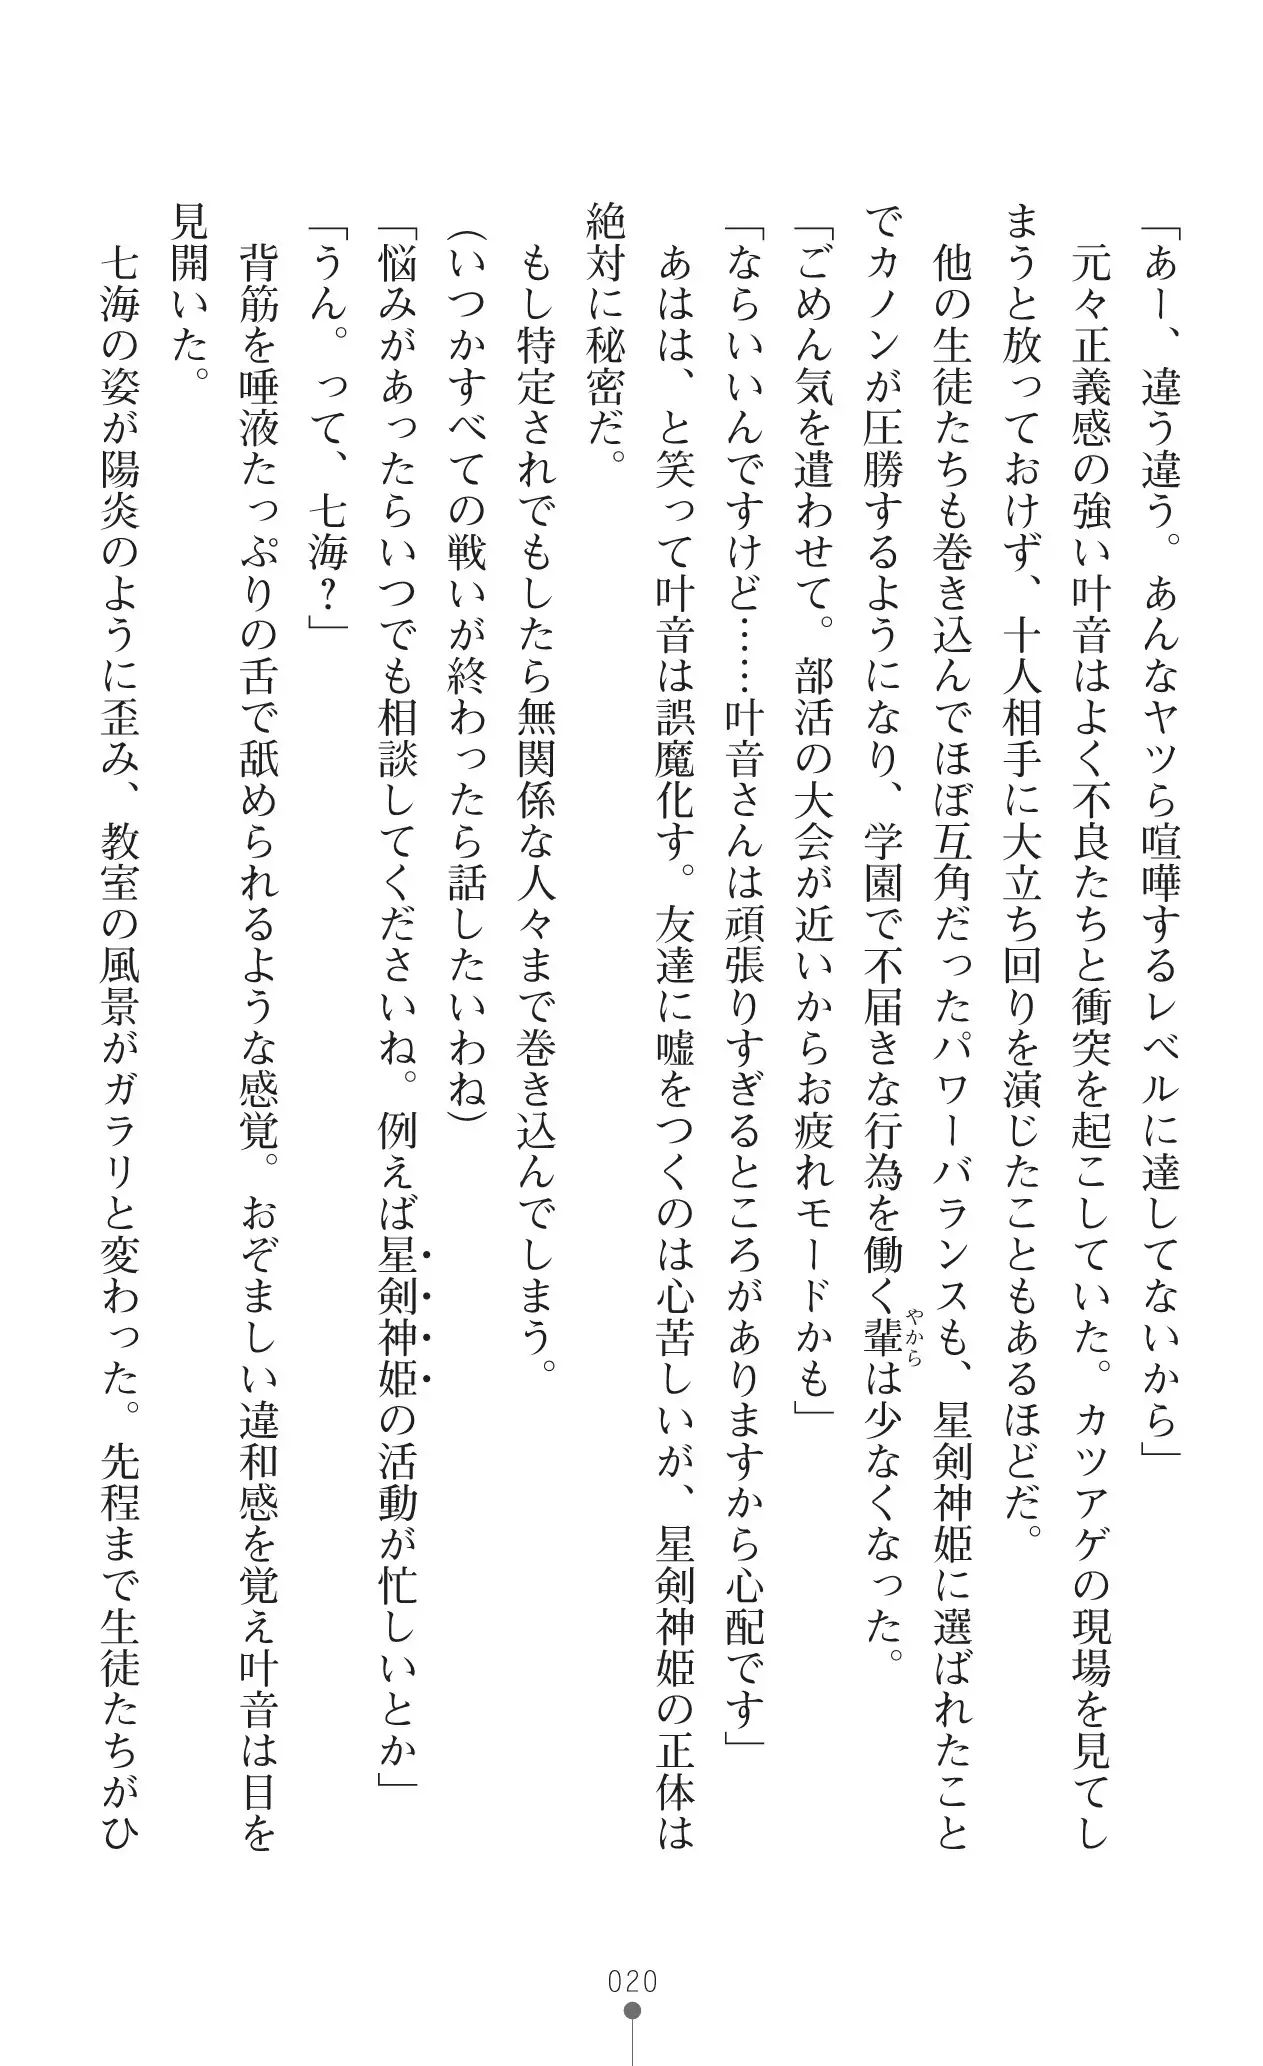 「あー、違う違う。あんなヤツら喧嘩するレベルに達してないから」
元々正義感の強い叶音はよく不良たちと衝突を起こしていた。カツアゲの現場を見てし
まうと放っておけず、十人相手に大立ち回りを演じたこともあるほどだ。
他の生徒たちも巻き込んでほぼ互角だったパワーバランスも、星剣神姫に選ばれたこと
でカノンが圧勝するようになり、学園で不届きな行為を働く輩は少なくなった。
やから
「ごめん気を遣わせて。部活の大会が近いからお疲れモードかも」
「ならいいんですけど……叶音さんは頑張りすぎるところがありますから心配です」
あはは、と笑って叶音は誤魔化す。友達に嘘をつくのは心苦しいが、星剣神姫の正体は
絶対に秘密だ。
もし特定されでもしたら無関係な人々まで巻き込んでしまう。
（いつかすべての戦いが終わったら話したいわね）
「悩みがあったらいつでも相談してくださいね。例えば星剣神姫の活動が忙しいとか」
「うん。って、七海？」
背筋を唾液たっぷりの舌で舐められるような感覚。おぞましい違和感を覚え叶音は目を
見開いた。
七海の姿が陽炎のように歪み、教室の風景がガラリと変わった。先程まで生徒たちがひ
020